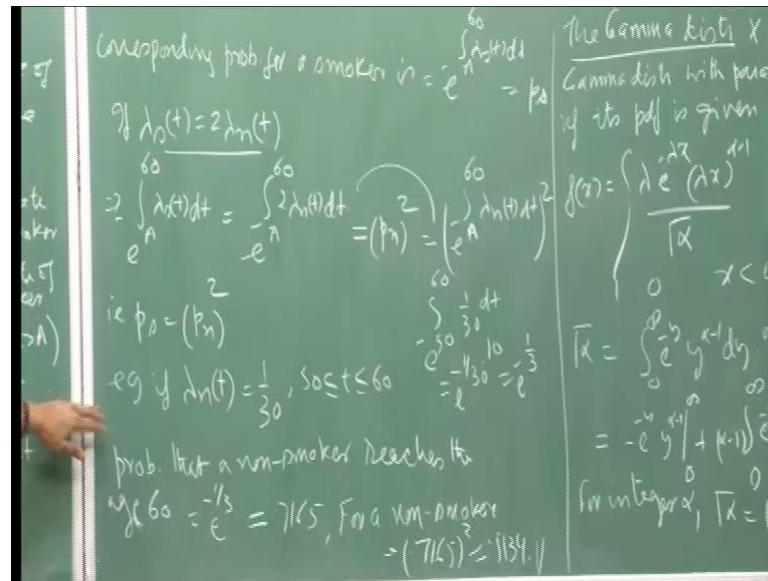 corresponding prob. for a smoker is = e^{-∫_A^{60} λs(t)dt} = ps
If λs(t) = 2λn(t)
⇒ e^{-∫_A^{60} λs(t)dt} = e^{-∫_A^{60} 2λn(t)dt} = (pn)^2 = (e^{-∫_A^{60} λn(t)dt})^2
ie ps = (pn)^2
e^{-∫_{50}^{60} 1/30 dt}
= e^{-1/30 10} = e^{-1/3}
eg if λn(t) = 1/30, 50 ≤ t ≤ 60
prob. that a non-smoker reaches the
age 60 = e^{-1/3} = .7165, For a non-smoker
= (.7165)^2 = .5134.
The Gamma distr X
Gamma distr with para
if its pdf is given
f(x) = { λe^{-λx}(λx)^{α-1} / Γα
0 x <
Γα = ∫_0^∞ e^{-y} y^{α-1} dy
= -e^{-y} y^{α-1} |_0^∞ + (α-1) ∫_0^∞ e
For integer α, Γα = (
of
A)